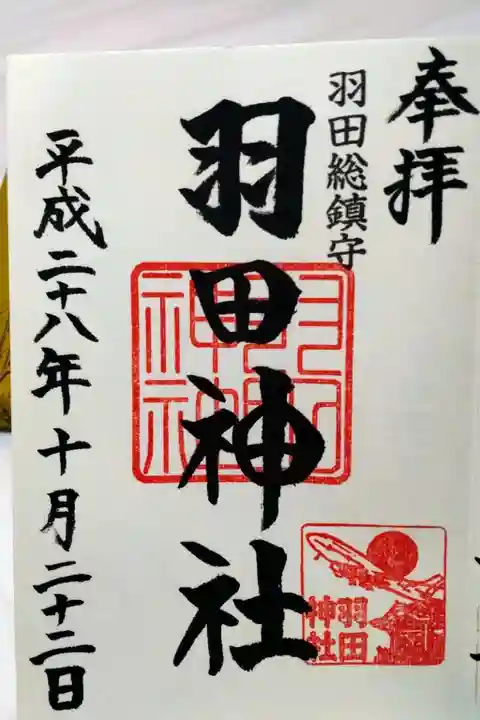 奉拝
羽田総鎮守
羽田神社
羽田神社
羽田
神社
平成二十八年十月二十二日